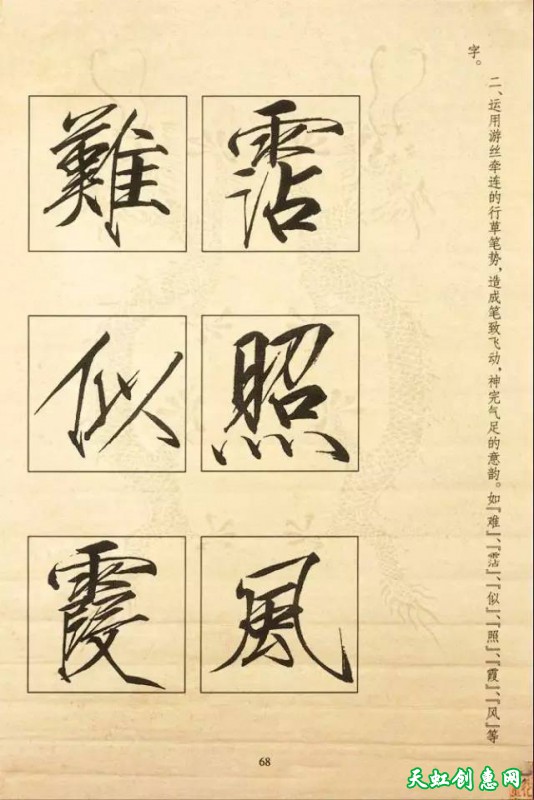 字。
二、运用游丝牵连的行草笔势，造成笔致飞动，神完气足的意韵。如『难』、『霑』、『似』、『照』、『霞』、『风』等
霑
照
風
難
似
霞
68
天虹创惠网